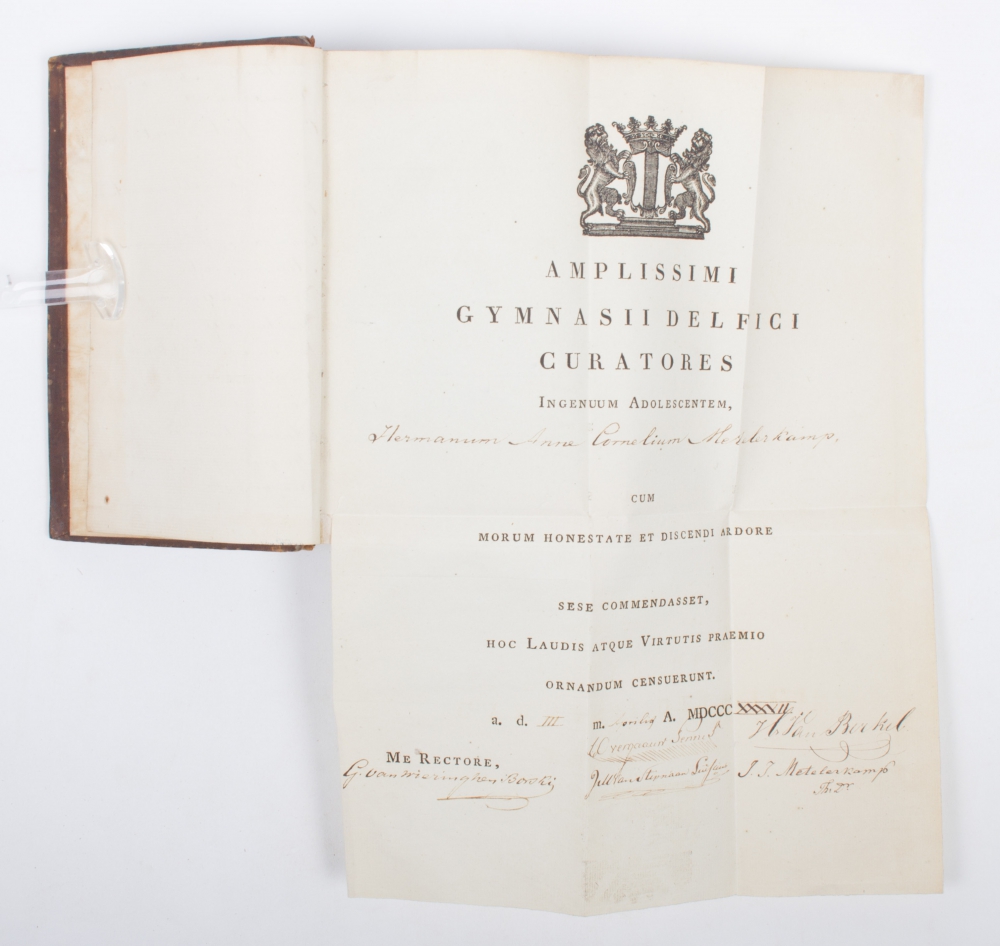 AMPLISSIMI
GYMNASII DELFICI
CURATORES
INGENUUM ADOLESCENTEM,
Hermanum Anne Cornelium Metelerkamp.
CUM
MORUM HONESTATE ET DISCENDI ARDORE
SESE COMMENDASSET,
HOC LAUDIS ATQUE VIRTUTIS PRAEMIO
ORNANDUM CENSUERUNT.
a. d. III m. Aprilis A. MDCCC XXXXII
H. Van Berkel
ME RECTORE,
G. van Wieringhen Borski
J. J. Metelerkamp
Th. Dr.